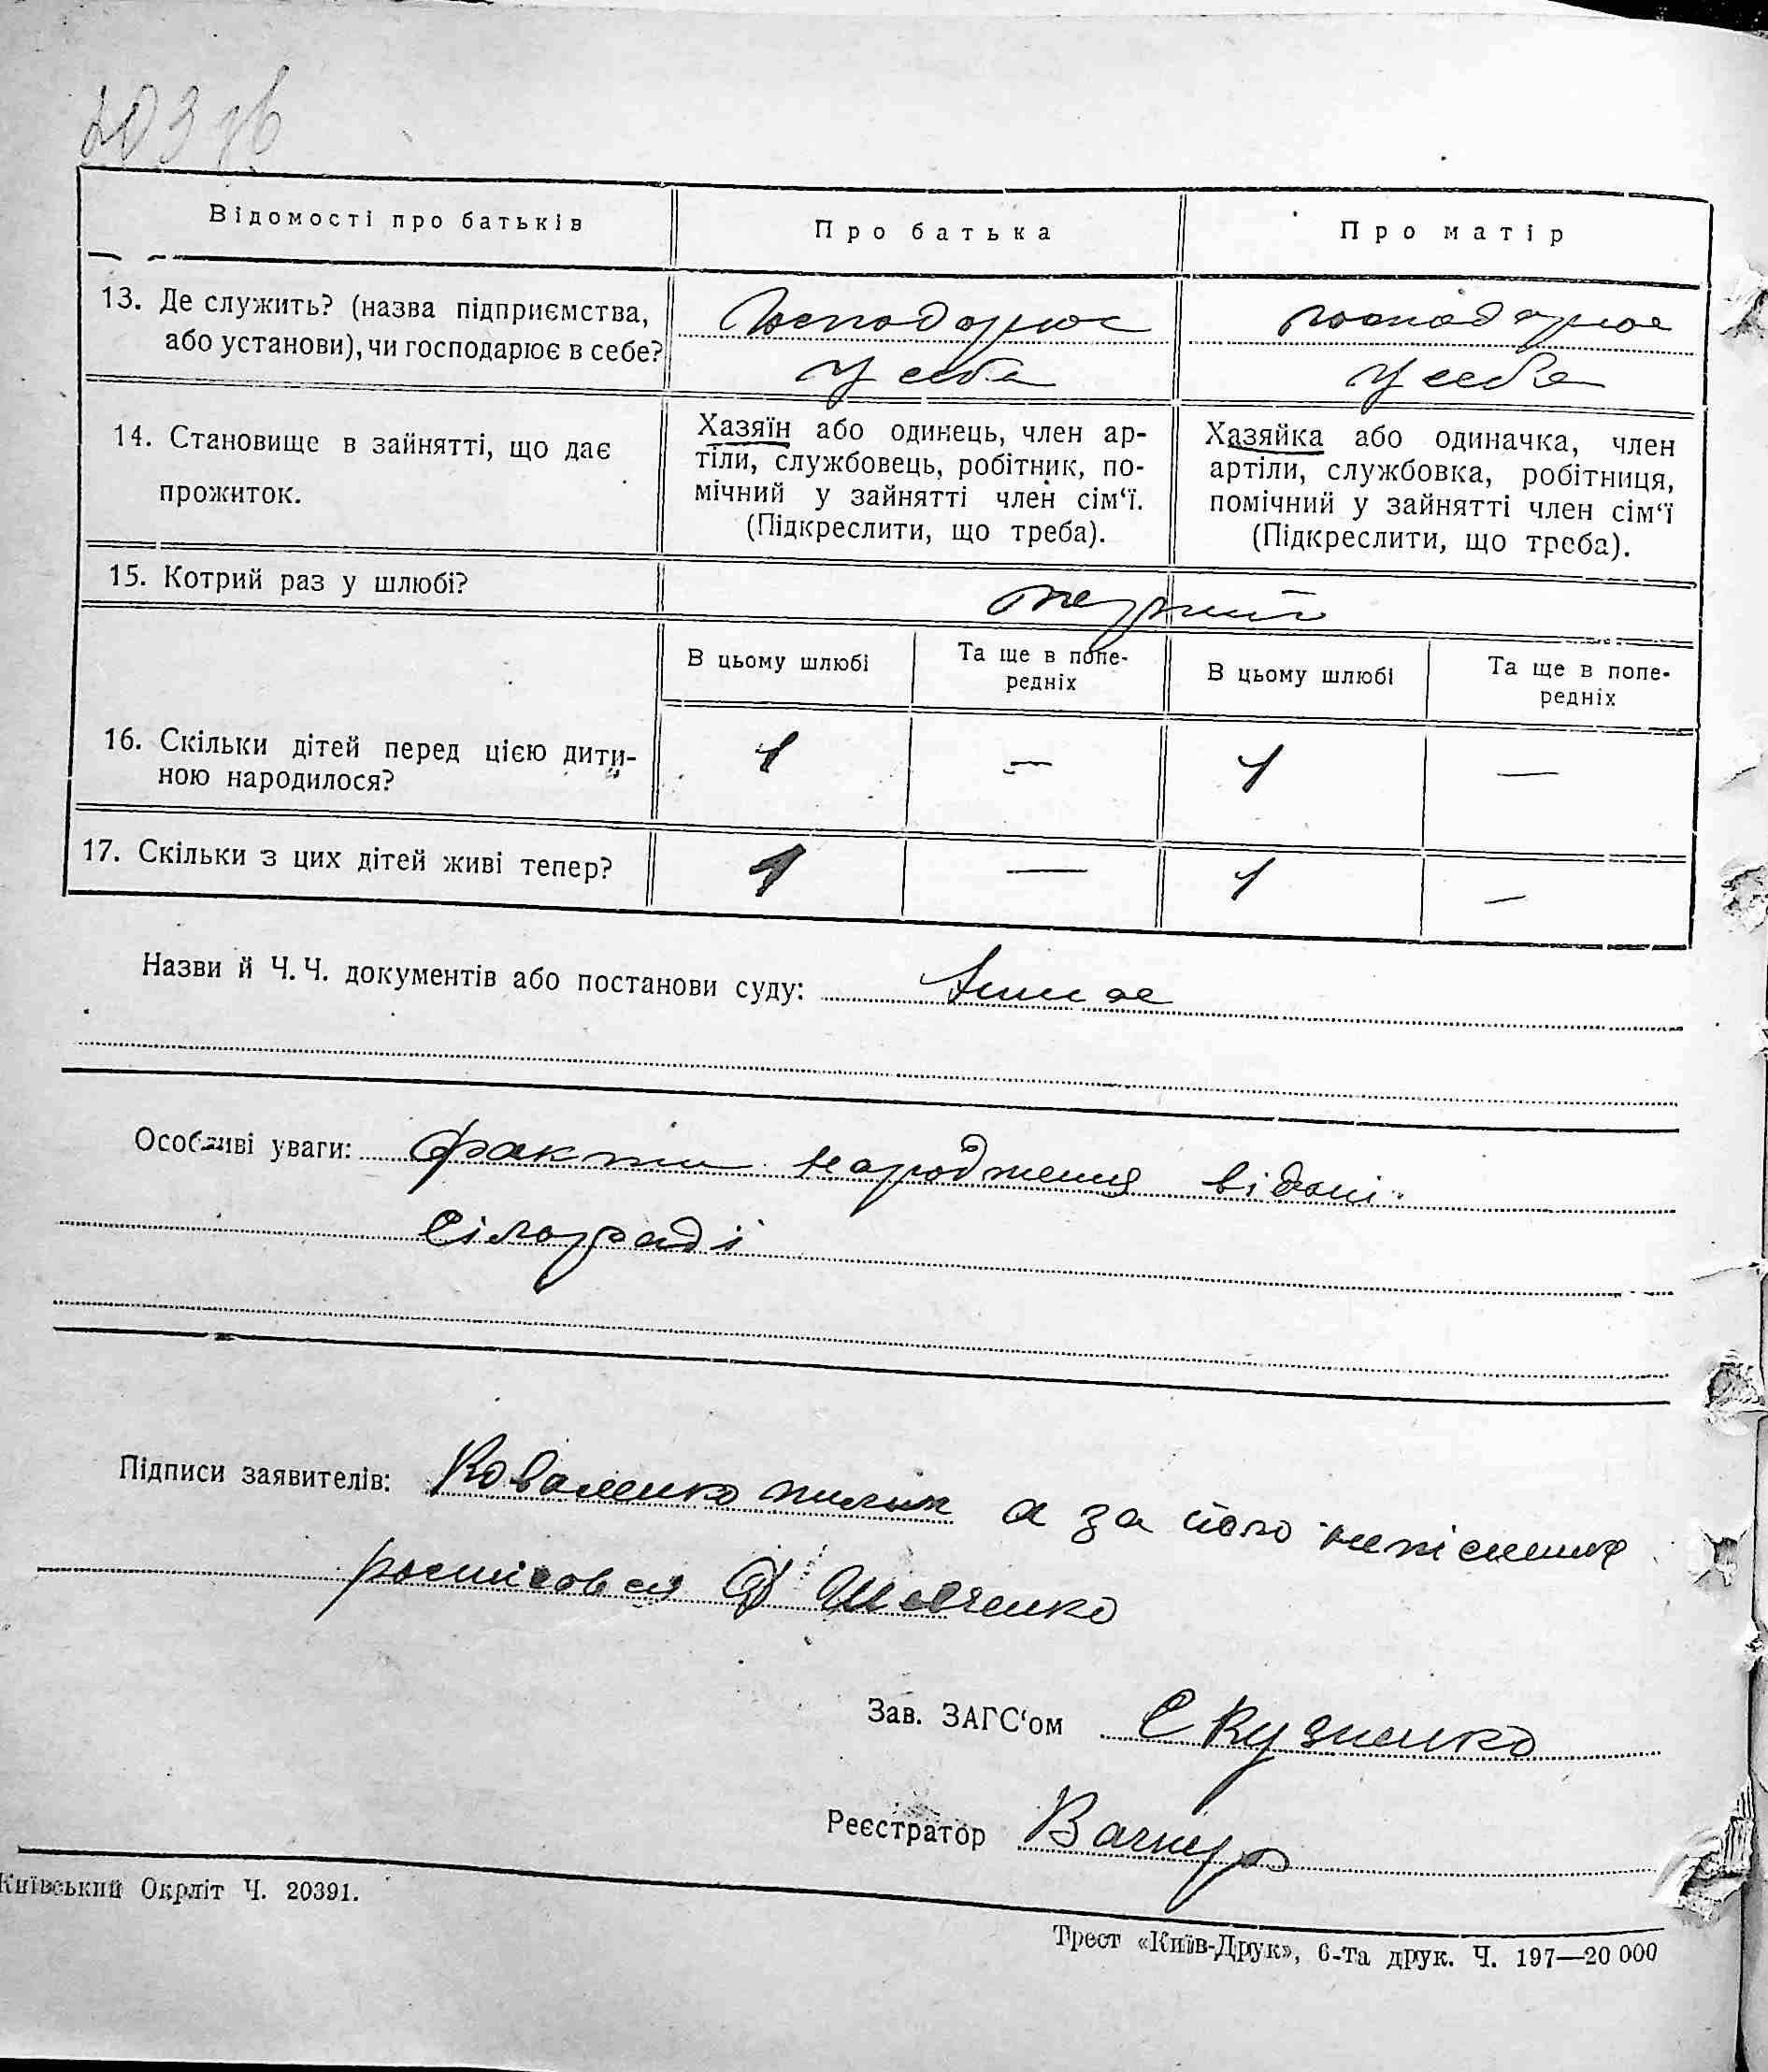 203 зв
Відомості про батьків
Про батька
Про матір
13. Де служить? (назва підприємства,
або установи), чи господарює в себе?
Господарює
у себе
господарює
у себе
14. Становище в зайнятті, що дає
прожиток.
Хазяїн або одинець, член ар-
тіли, службовець, робітник, по-
мічний у зайнятті член сім‘ї.
(Підкреслити, що треба).
Хазяйка або одиначка, член
артіли, службовка, робітниця,
помічний у зайнятті член сім‘ї
(Підкреслити, що треба).
15. Котрий раз у шлюбі?
перший
В цьому шлюбі
Та ще в попе-
редніх
В цьому шлюбі
Та ще в попе-
редніх
16. Скільки дітей перед цією дити-
ною народилося?
1 — 1 —
17. Скільки з цих дітей живі тепер?
1 — 1 —
Назви й Ч. Ч. документів або постанови суду:
Особливі уваги: факти народження відомі
сілораді
Підписи заявителів: Коваленко пилип а за його
росписовся Шевченко
Зав. ЗАГС‘ом Є Кузменко
Реєстратор Вагнер
Київський Окрліт Ч. 20391.
Трест «Київ-Друк», 6-та друк. Ч. 197—20 000